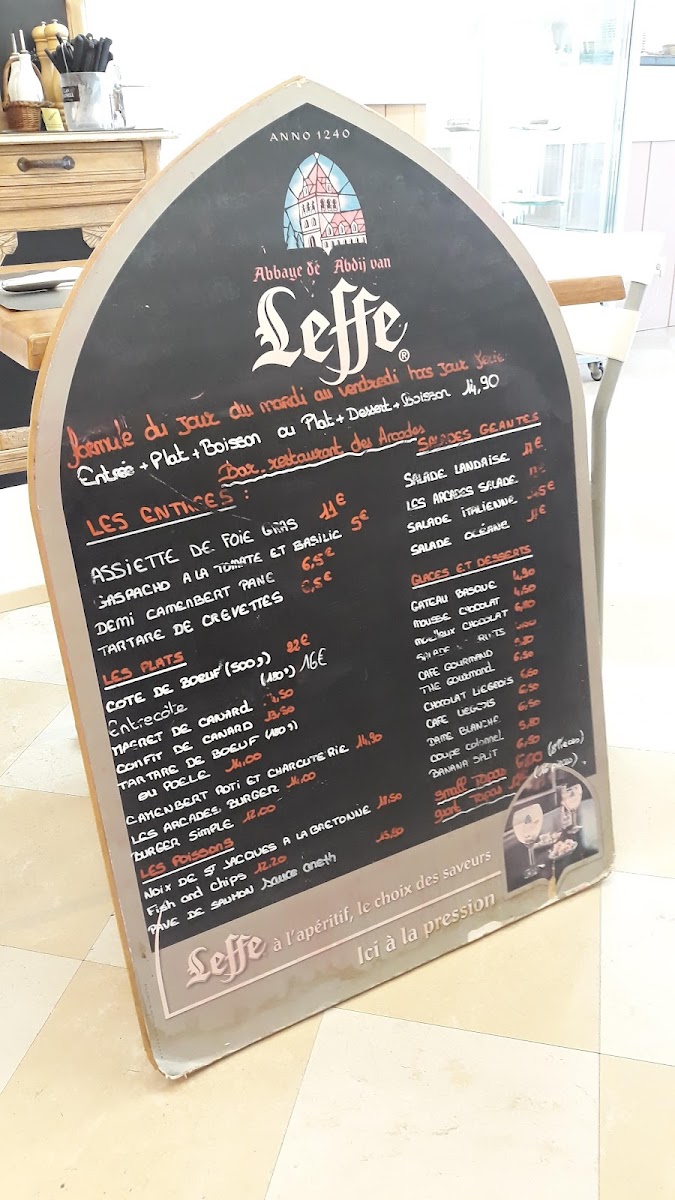 ANNO 1240
Abbaye de Abdij van
Leffe®
formule du jour du mardi au vendredi hors jour ferié
Entrée + Plat + Boisson ou Plat + Dessert + Boisson 14,90
Bar restaurant des Arcades
LES ENTREES :
ASSIETTE DE FOIE GRAS 11€
GASPACHO A LA TOMATE ET BASILIC 5€
DEMI CAMENBERT PANE 6,5€
TARTARE DE CREVETTES 6,5€
LES PLATS
COTE DE BOEUF (500g) 22€
Entrecôte (180g) 16€
MAGRET DE CANARD
CONFIT DE CANARD 13,50
TARTARE DE BOEUF (180g)
OU POELE 14,00
CAMENBERT ROTI ET CHARCUTERIE 14,90
LES ARCADES BURGER 14,00
BURGER SIMPLE 12,00
LES POISSONS
NOIX DE ST JACQUES A LA BRETONNE 17,50
Fish and Chips 12.20
PAVE DE SAUMON sauce aneth 13,50
SALADES GEANTES
SALADE LANDAISE
LES ARCADES SALADE
SALADE ITALIENNE
SALADE OCÉANE
GLACES ET DESSERTS
GATEAU BASQUE 4,90
MOUSSE CHOCOLAT 4,50
MOELLEUX CHOCOLAT
SALADE FRUITS
CAFE GOURMAND
THE GOURMAND 6,50
CHOCOLAT LIEGEOIS 6,50
CAFE LIEGEOIS 6,50
DAME BLANCHE 6,50
COUPE COLONEL 5,80
BANANA SPLIT 6,50
Small Tapas
Giant Tapas
Leffe à l'apéritif, le choix des saveurs
Ici à la pression